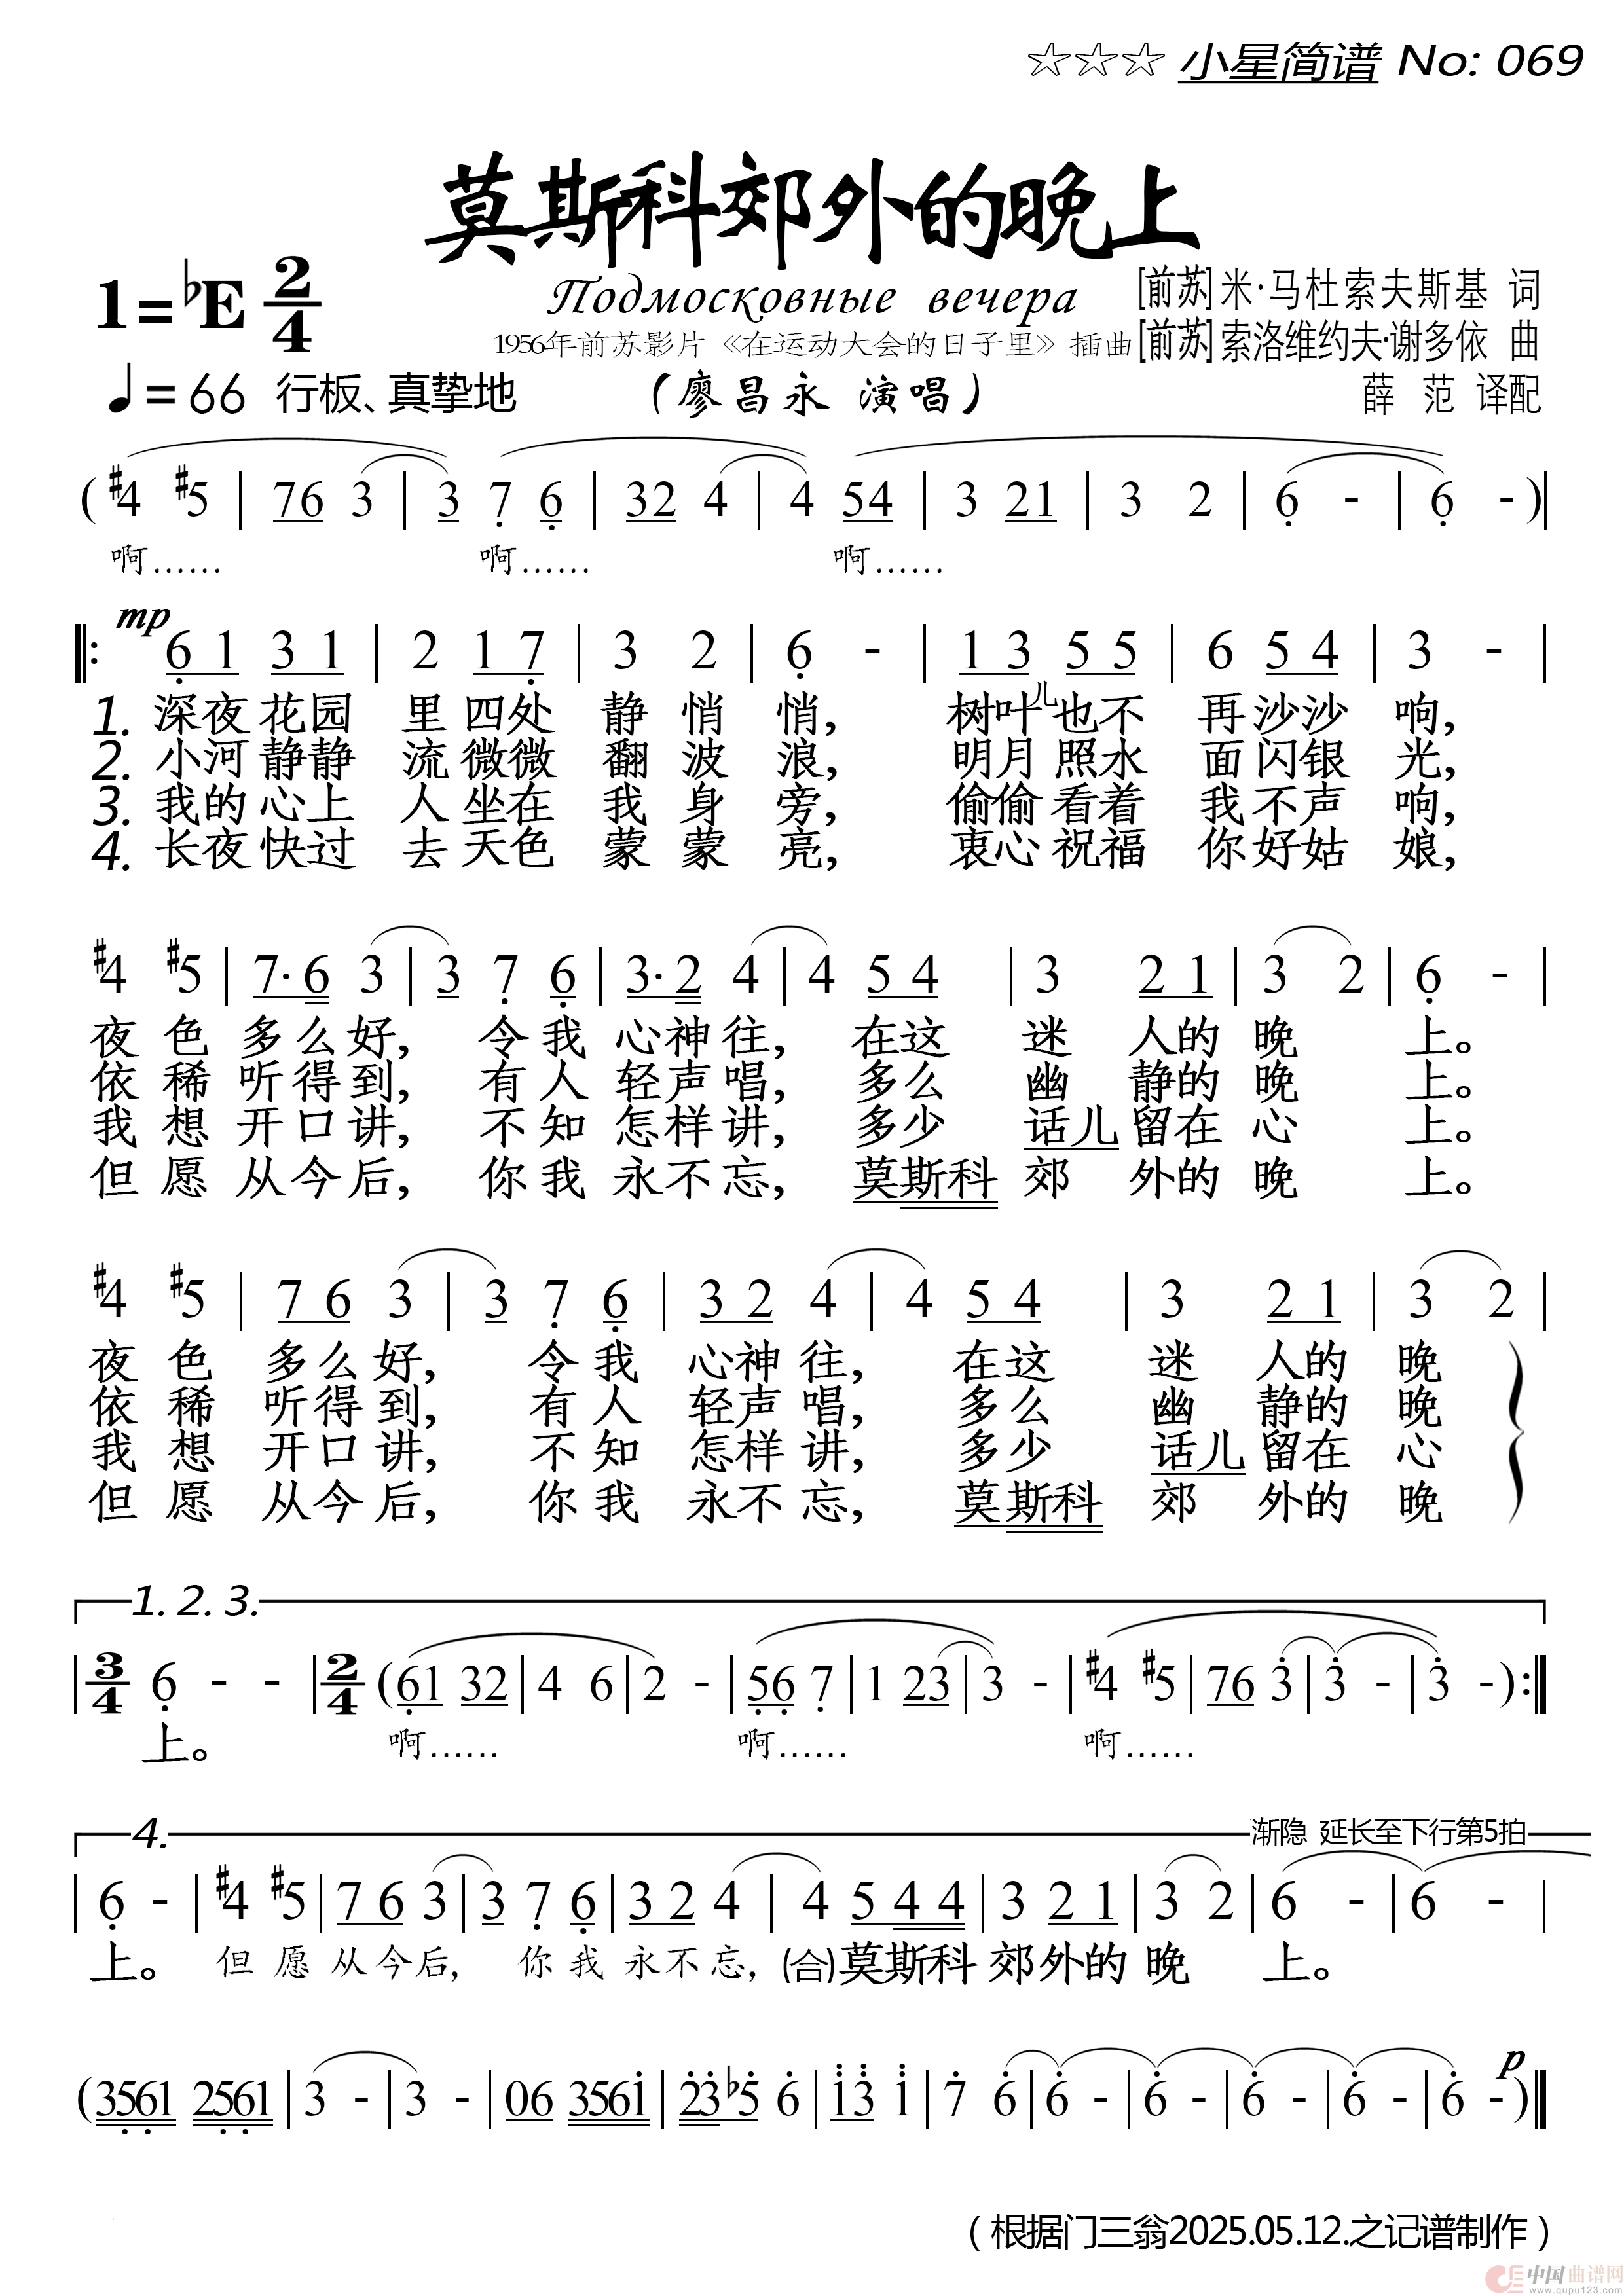 ☆☆☆ 小星简谱 No: 069
莫斯科郊外的晚上
1=♭E 2/4
Подмосковные вечера
[前苏]米·马杜索夫斯基 词
1956年前苏影片《在运动大会的日子里》插曲
[前苏]索洛维约夫·谢多依 曲
♩=66 行板、真挚地
(廖昌永 演唱)
薛 范 译配
( #4 #5 | 76 3 | 3 7 6 | 32 4 | 4 54 | 3 21 | 3 2 | 6 - | 6 - )|
啊…… 啊…… 啊……
mp
‖: 6 1 3 1 | 2 1 7 | 3 2 | 6 - | 1 3 5 5 | 6 5 4 | 3 - |
1. 深夜花园 里四处 静悄悄, 树叶儿也不 再沙沙 响,
2. 小河静静 流微微 翻波浪, 明月照水 面闪银 光,
3. 我的心上 人坐在 我身旁, 偷偷看着 我不声 响,
4. 长夜快过 去天色 蒙蒙亮, 衷心祝福 你好姑 娘,
#4 #5 | 7· 6 3 | 3 7 6 | 3· 2 4 | 4 5 4 | 3 2 1 | 3 2 | 6 - |
夜色 多么好, 令我 心神往, 在这 迷 人的 晚 上。
依稀 听得到, 有人 轻声唱, 多么 幽 静的 晚 上。
我想 开口讲, 不知 怎样讲, 多少 话儿 留在 心 上。
但愿 从今后, 你我 永不忘, 莫斯科 郊 外的 晚 上。
#4 #5 | 7 6 3 | 3 7 6 | 3 2 4 | 4 5 4 | 3 2 1 | 3 2 |
夜色 多么好, 令我 心神往, 在这 迷 人的 晚
依稀 听得到, 有人 轻声唱, 多么 幽 静的 晚
我想 开口讲, 不知 怎样讲, 多少 话儿 留在 心
但愿 从今后, 你我 永不忘, 莫斯科 郊 外的 晚
1. 2. 3.
| 3/4 6 - - | 2/4 (61 32 | 4 6 | 2 - | 56 7 | 1 23 | 3 - | #4 #5 | 76 3 | 3 - | 3 - ) :‖
上。 啊…… 啊…… 啊……
4. 渐隐 延长至下行第5拍
| 6 - | #4 #5 | 7 6 3 | 3 7 6 | 3 2 4 | 4 5 4 4 | 3 2 1 | 3 2 | 6 - | 6 - |
上。 但愿 从今后, 你我 永不忘, (合)莫斯科 郊外的 晚 上。
p
(3561 2561 | 3 - | 3 - | 06 3561 | 23♭5 6 | 13 1 | 7 6 | 6 - | 6 - | 6 - | 6 - | 6 - )‖
(根据门三翁2025.05.12.之记谱制作)
中国曲谱网
www.qupu123.com